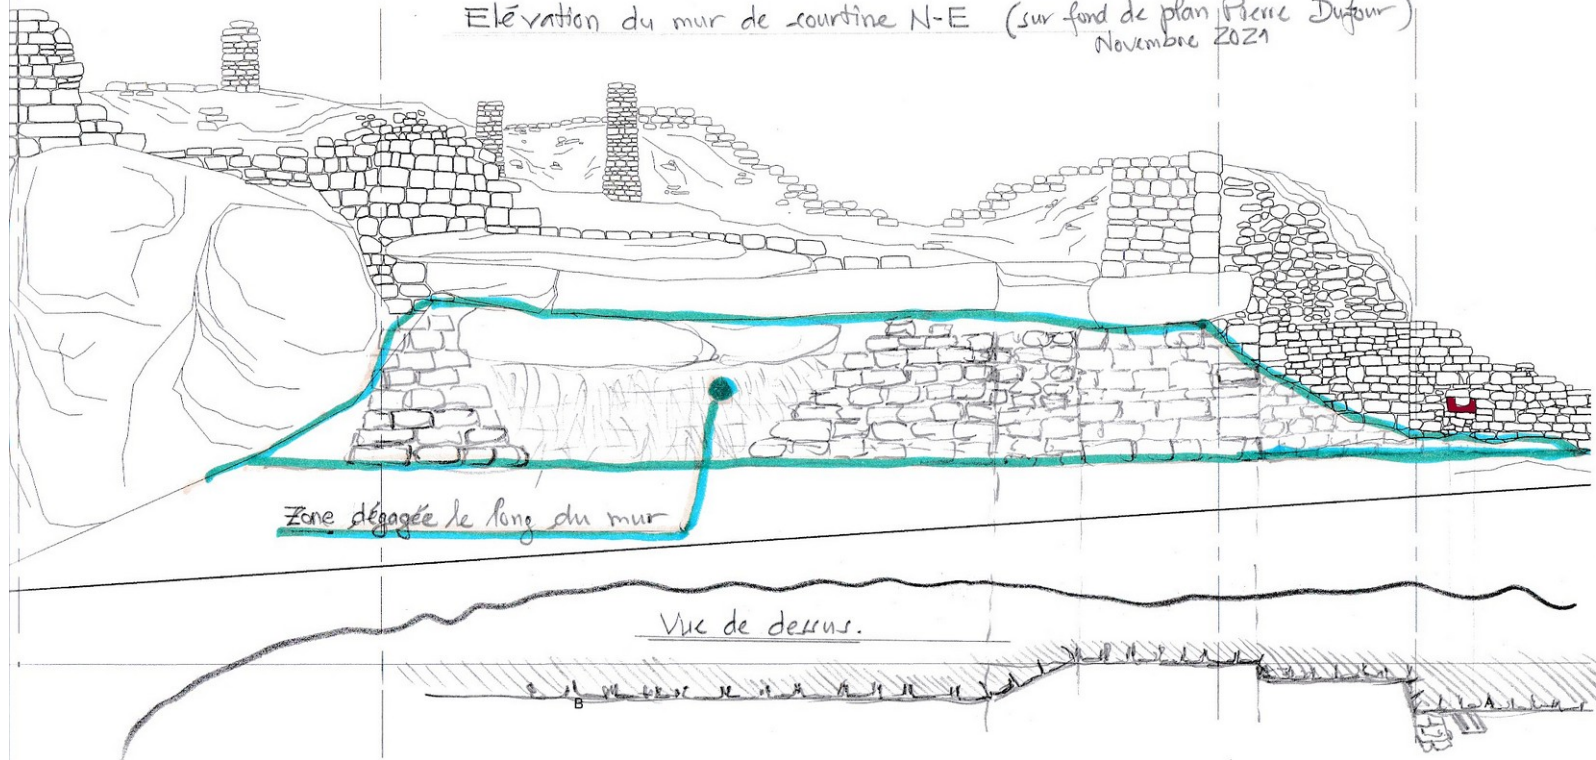 Elévation du mur de courtine N-E (sur fond de plan Pierre Dufour)
Novembre 2021
Zone dégagée le long du mur
Vue de dessus.
B
A